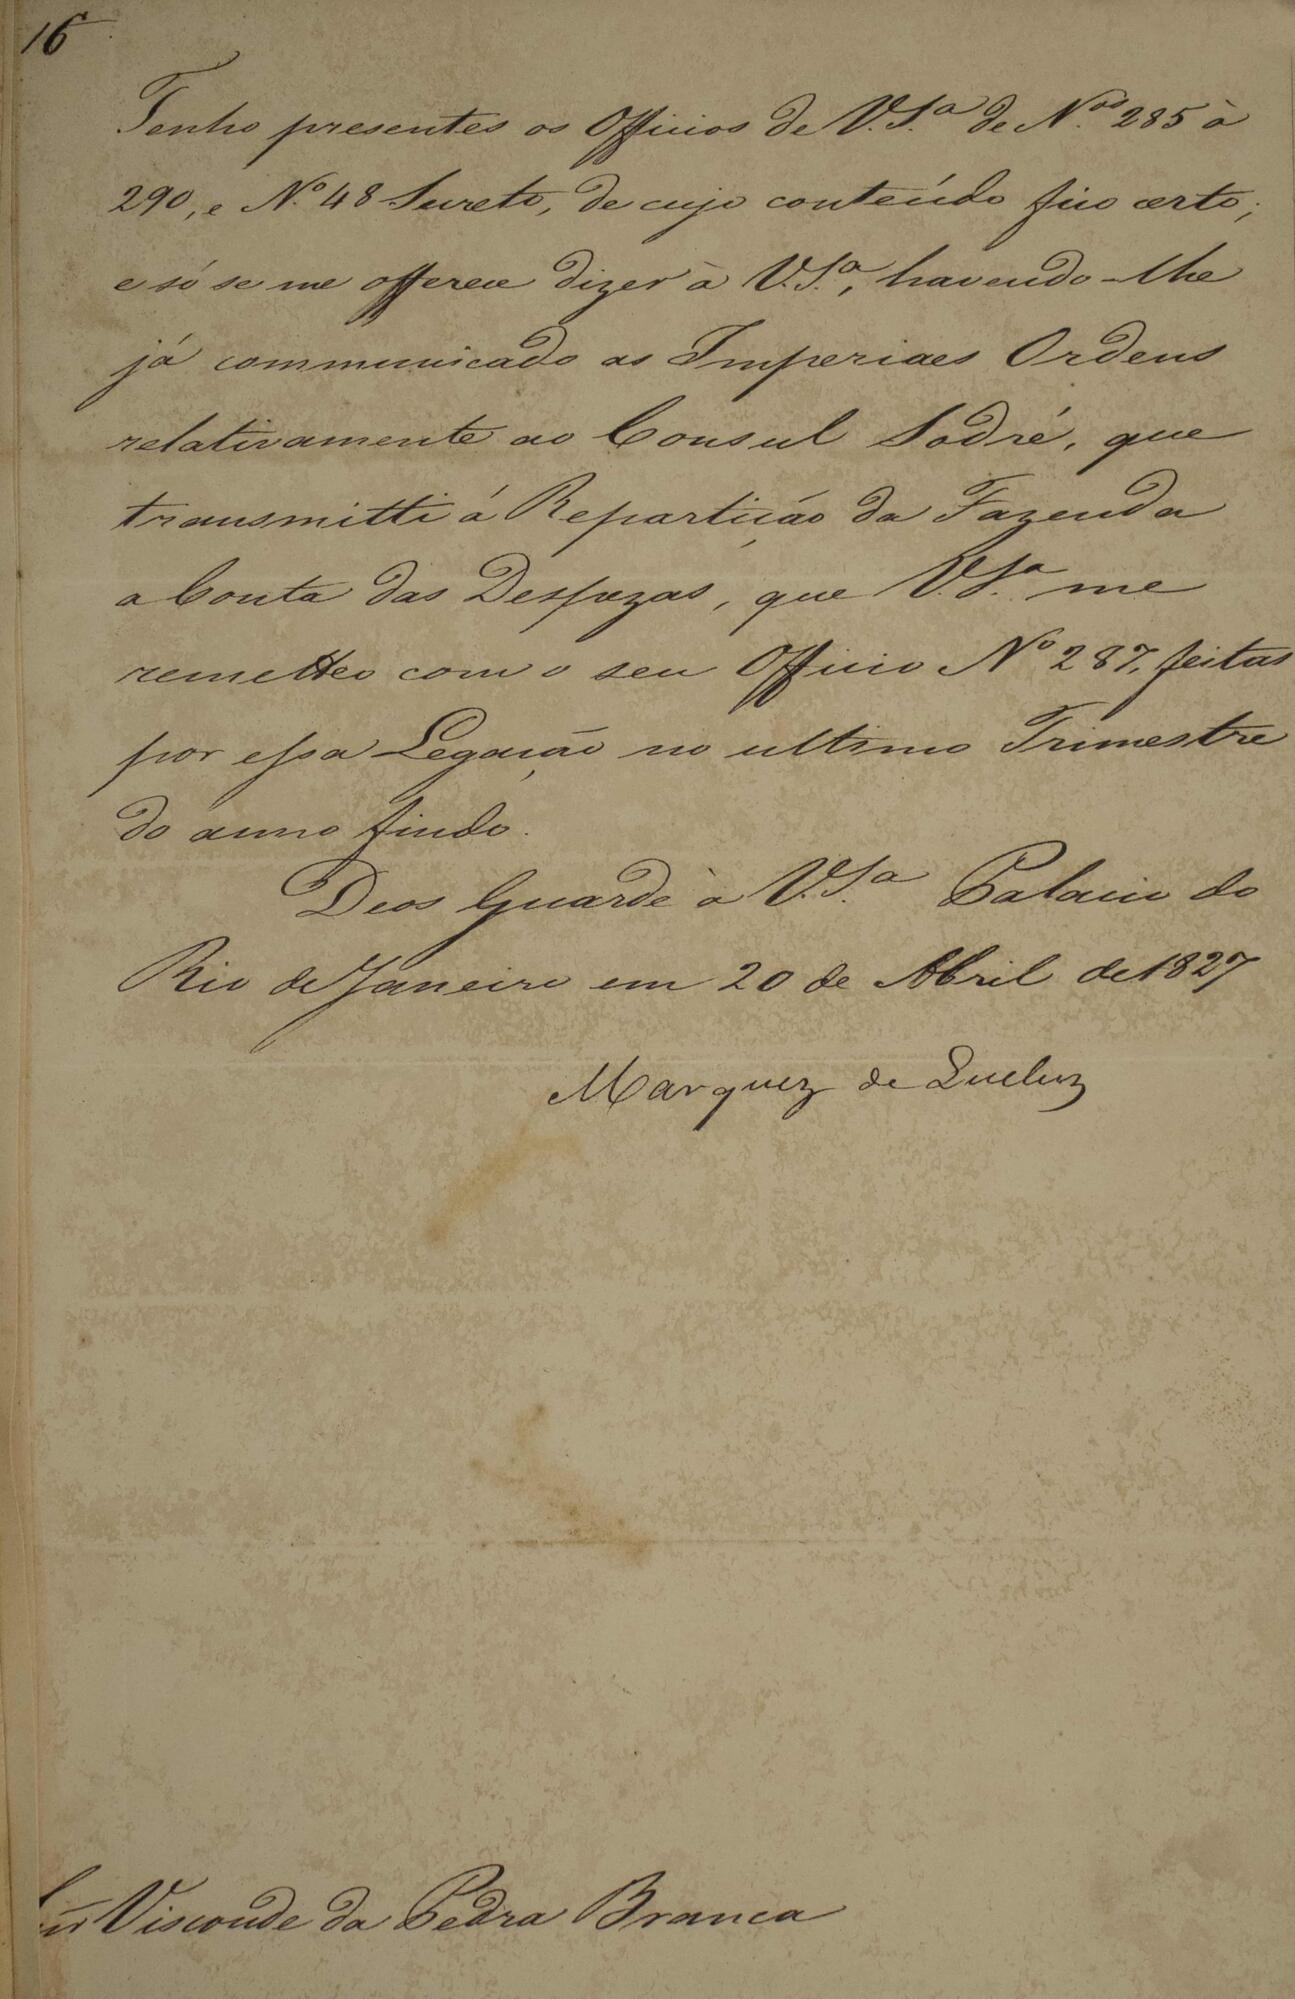 16
Tenho presentes os Officios de V.S.ª de N.os 285 à
290, e N.º 48 Secreto, de cujo conteúdo fico certo;
e só se me offerece dizer à V.S.ª, havendo-lhe
já communicado as Imperiaes Ordens
relativamente ao Consul Sodré, que
transmitti á Repartição da Fazenda
a Conta das Despezas, que V.S.ª me
remetteo com o seu Officio N.º 287, feitas
por essa Legação no ultimo Trimestre
do anno findo.
Deos Guarde à V.S.ª Palacio do
Rio de Janeiro em 20 de Abril de 1827
Marquez de Queluz
Visconde da Pedra Branca